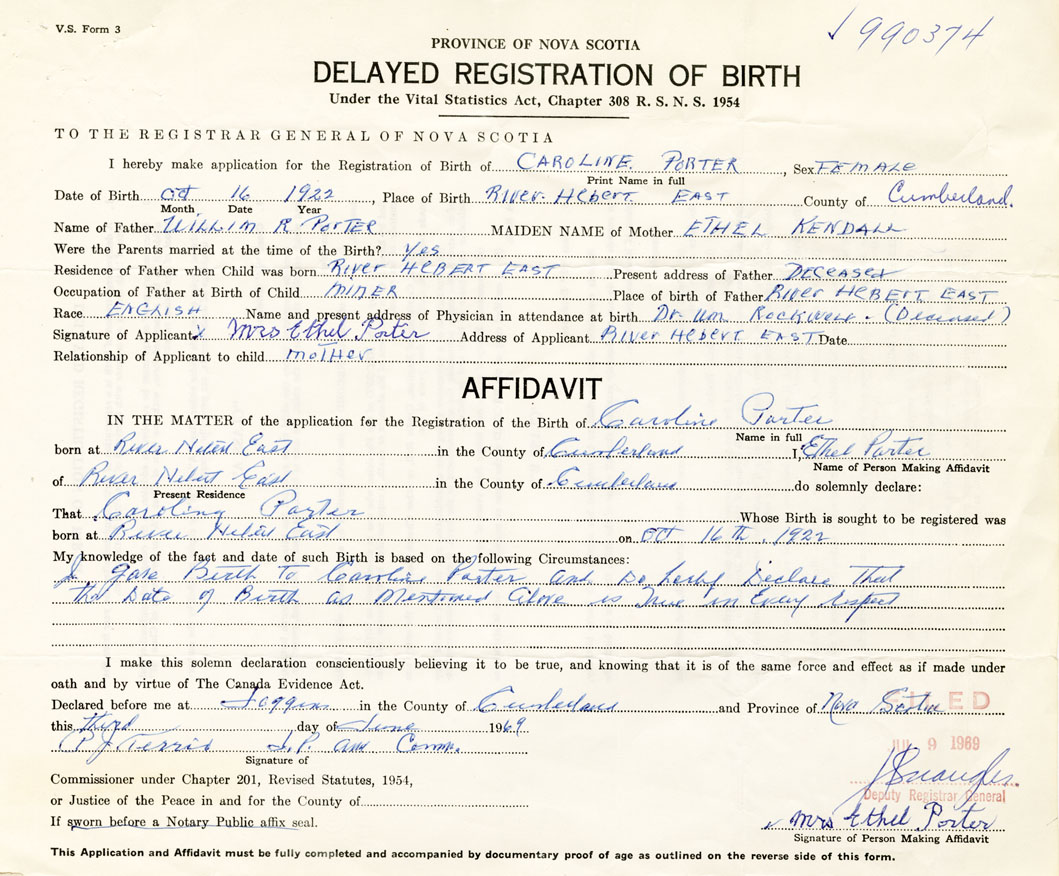 V.S. Form 3
990374
PROVINCE OF NOVA SCOTIA
DELAYED REGISTRATION OF BIRTH
Under the Vital Statistics Act, Chapter 308 R. S. N. S. 1954
TO THE REGISTRAR GENERAL OF NOVA SCOTIA
I hereby make application for the Registration of Birth of CAROLINE PORTER, Sex FEMALE
Print Name in full
Date of Birth Oct 16 1922, Place of Birth RIVER HEBERT EAST County of Cumberland.
Month Date Year
Name of Father WILLIM R PORTER MAIDEN NAME of Mother ETHEL KENDALL
Were the Parents married at the time of the Birth? Yes
Residence of Father when Child was born RIVER HEBERT EAST Present address of Father DECEASED
Occupation of Father at Birth of Child MINER Place of birth of Father RIVER HEBERT EAST
Race ENGLISH Name and present address of Physician in attendance at birth Dr. Wm ROCKWELL - (Deceased)
Signature of Applicant x Mrs Ethel Porter Address of Applicant RIVER HEBERT EAST Date
Relationship of Applicant to child MOTHER
AFFIDAVIT
IN THE MATTER of the application for the Registration of the Birth of Caroline Porter
Name in full
born at River Hebert East in the County of Cumberland I, Ethel Porter
Name of Person Making Affidavit
of River Hebert East in the County of Cumberland do solemnly declare:
Present Residence
That Caroline Porter Whose Birth is sought to be registered was
born at River Hebert East on Oct 16th, 1922
My knowledge of the fact and date of such Birth is based on the following Circumstances:
I gave Birth to Caroline Porter and Do herby Declare That
the Date of Birth as Mentioned above is True in Every Respect
I make this solemn declaration conscientiously believing it to be true, and knowing that it is of the same force and effect as if made under
oath and by virtue of The Canada Evidence Act.
Declared before me at Joggins in the County of Cumberland and Province of Nova Scotia
FILED
this third day of June 1969
JUL 9 1969
P.J. Terris J.P. and Comm.
Signature of
Commissioner under Chapter 201, Revised Statutes, 1954,
Deputy Registrar General
or Justice of the Peace in and for the County of
If sworn before a Notary Public affix seal.
Mrs Ethel Porter
Signature of Person Making Affidavit
This Application and Affidavit must be fully completed and accompanied by documentary proof of age as outlined on the reverse side of this form.